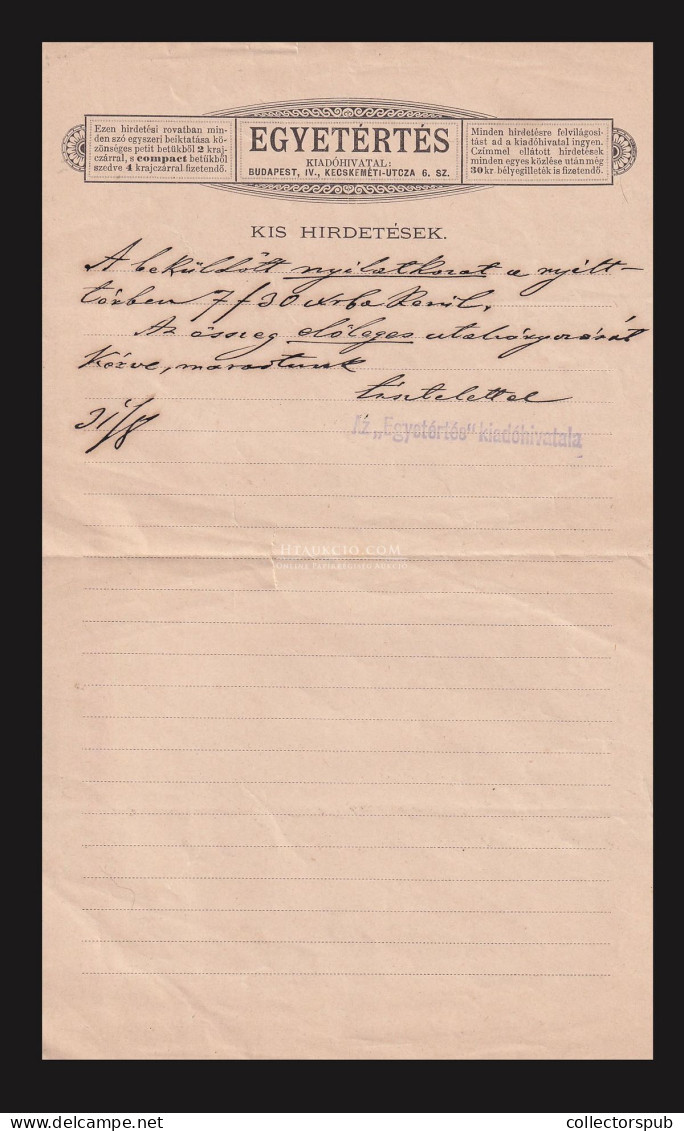 Ezen hirdetési rovatban min-
den szó egyszeri beiktatása kö-
zönséges petit betűkből 2 kraj-
czárral, s compact betűkből
szedve 4 krajczárral fizetendő.
EGYETÉRTÉS
KIADÓHIVATAL:
BUDAPEST, IV., KECSKEMÉTI-UTCZA 6. SZ.
Minden hirdetésre felvilágosi-
tást ad a kiadóhivatal ingyen.
Czímmel ellátott hirdetések
minden egyes közlése után még
30 kr bélyegilleték is fizetendő.
KIS HIRDETÉSEK.
A beküldött nyilatkozat a nyilt-
térben 7/30 kerül.
Az összeg előleges utalványozását
kérve, maradtunk
tisztelettel
31/8
Az „Egyetértés" kiadóhivatala
HTAUKCIO.COM
ONLINE PAPÍRRÉGISÉG AUKCIÓ
collectorspub.com